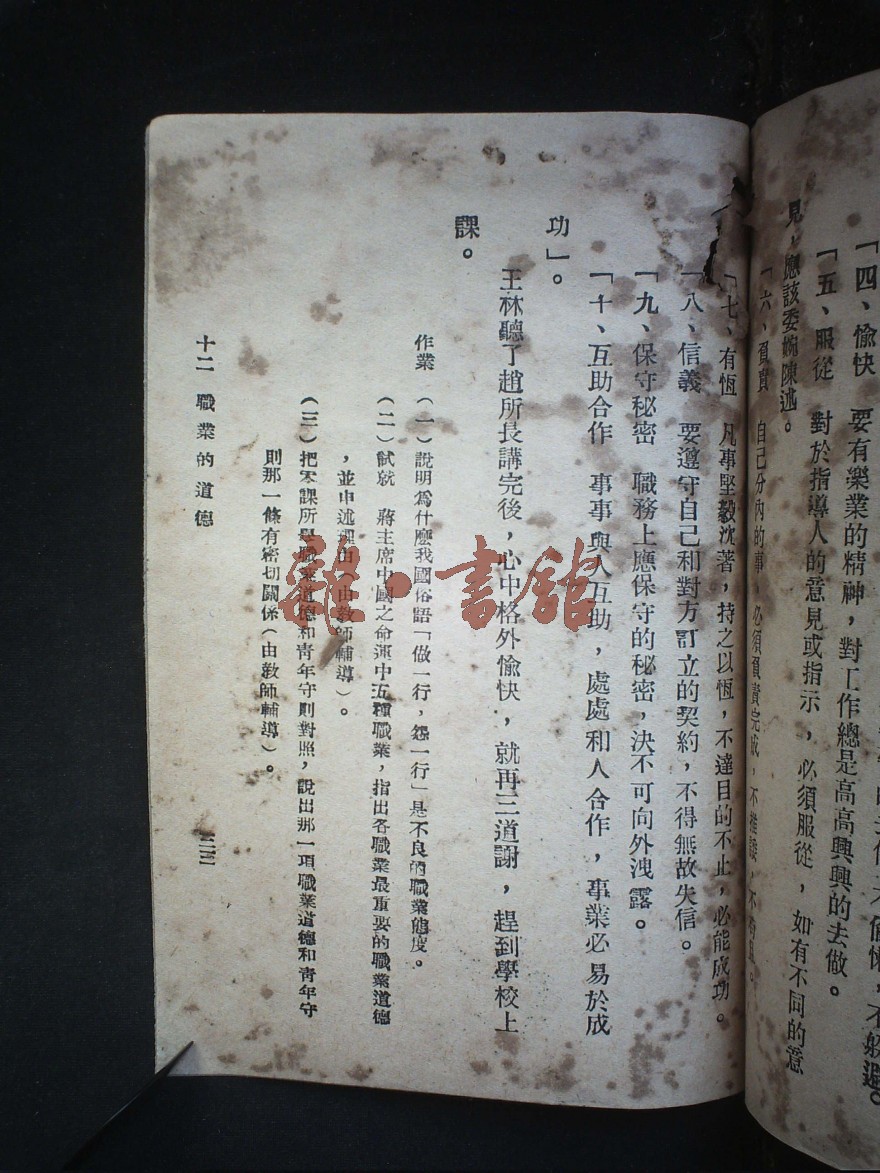 「四、愉快　要有樂業的精神，對工作總是高高興興的去做。
「五、服從　對於指導人的意見或指示，必須服從，如有不同的意
見，應該委婉陳述。
「六、負責　自己分內的事，必須負責完成，不推諉，不
「七、有恆　凡事堅毅沈著，持之以恆，不達目的不止，必能成功。
「八、信義　要遵守自己和對方訂立的契約，不得無故失信。
「九、保守秘密　職務上應保守的秘密，決不可向外洩露。
「十、互助合作　事事與人互助，處處和人合作，事業必易於成
功」。
王林聽了趙所長講完後，心中格外愉快，就再三道謝，趕到學校上
課。
作業　（一）說明爲什麼我國俗語「做一行，怨一行」是不良的職業態度。
（二）試就　蔣主席中國之命運中五種職業，指出各職業最重要的職業道德
，並申述理由（由教師輔導）。
（三）把本課所學職業道德和青年守則對照，說出那一項職業道德和青年守
則那一條有密切關係（由教師輔導）。
十二　職業的道德
二三
雜·書館